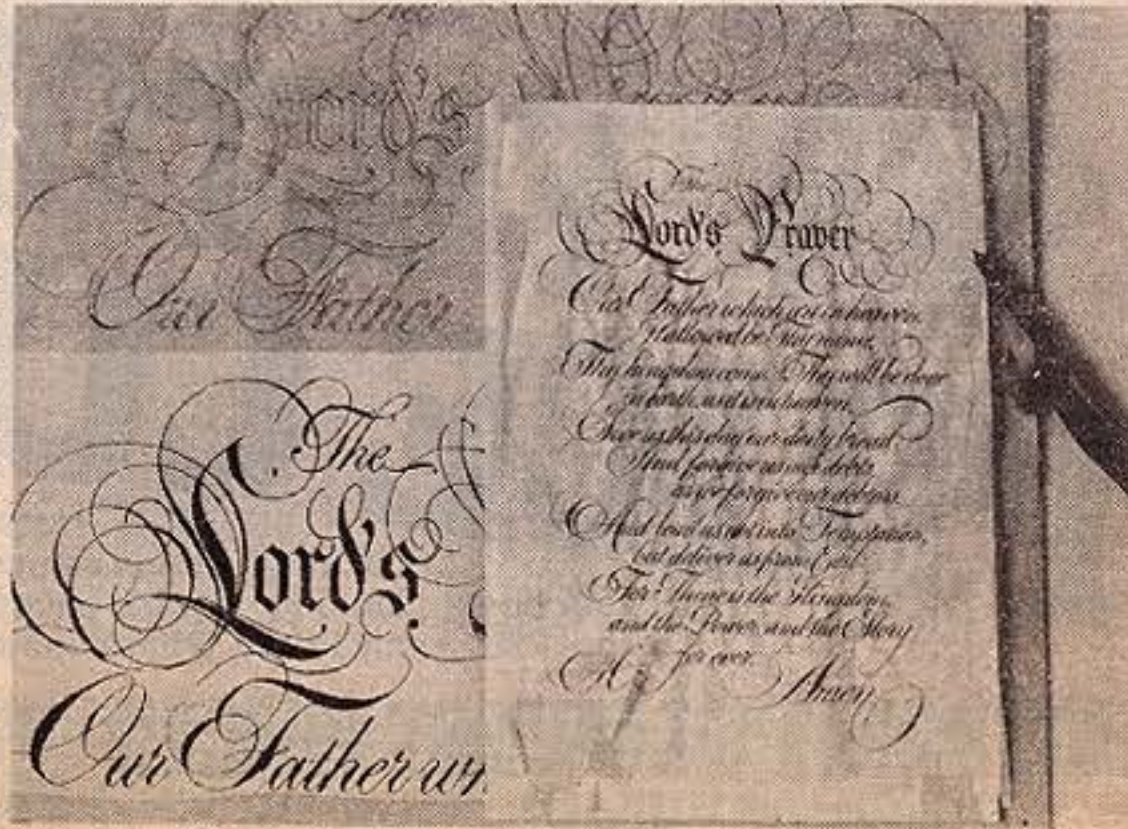 The
Lord's
Our Father
The
Lord's
Our Father wh
The
Lord's Prayer
Our Father which art in heaven,
Hallowed be Thy name,
Thy kingdom come. Thy will be done
in earth, as it is in heaven,
Give us this day our daily bread
And forgive us our debts
as we forgive our debtors
And lead us not into Temptation,
but deliver us from Evil
For Thine is the Kingdom,
and the Power, and the Glory
for ever.
Amen